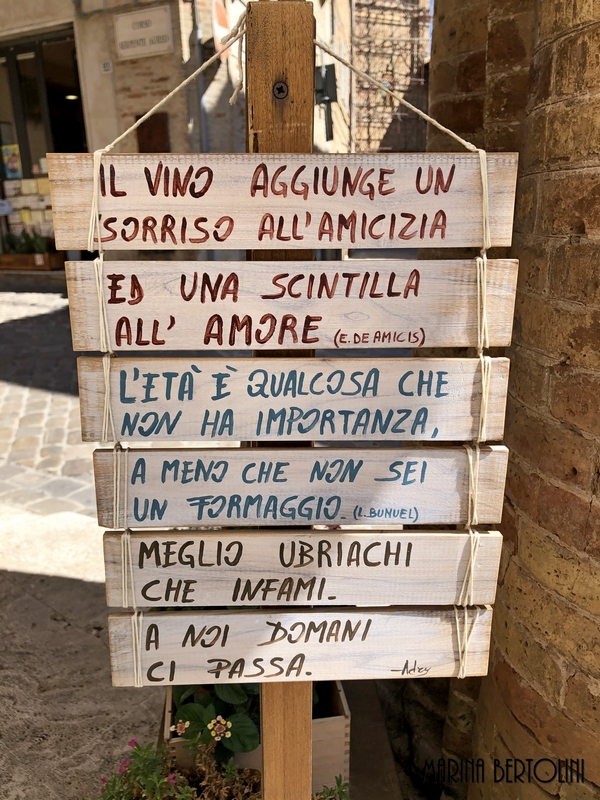 CORSO
IL VINO AGGIUNGE UN
SORRISO ALL'AMICIZIA
ED UNA SCINTILLA
ALL' AMORE (E. DE AMICIS)
L'ETÀ È QUALCOSA CHE
NON HA IMPORTANZA,
A MENO CHE NON SEI
UN FORMAGGIO. (L. BUNUEL)
MEGLIO UBRIACHI
CHE INFAMI.
A NOI DOMANI
CI PASSA.
MARINA BERTOLINI